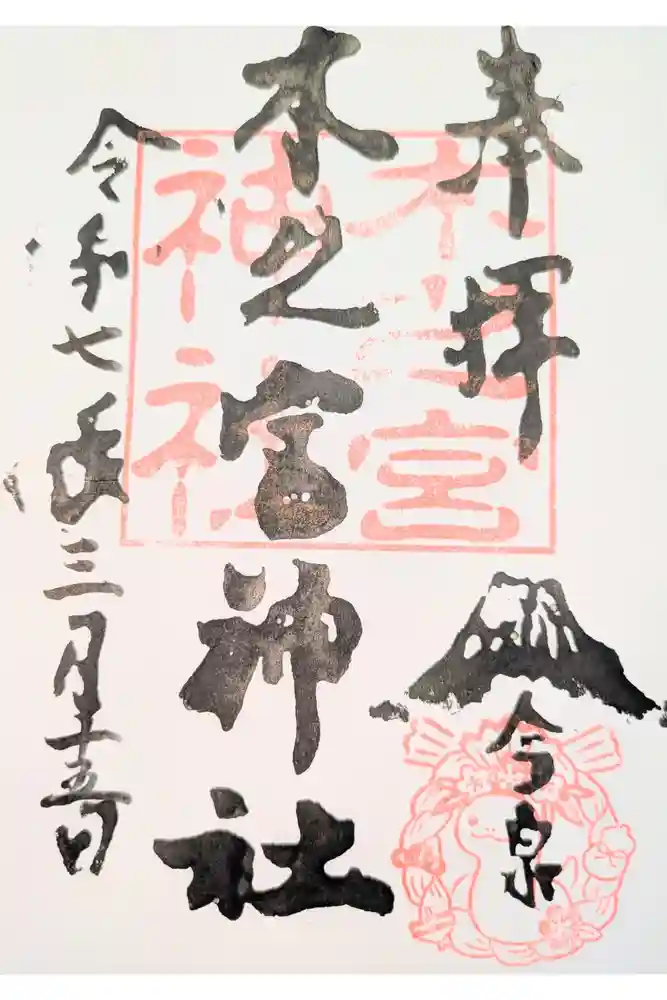 奉拝
今泉
本之宮神社
本之宮
神社
令和七年三月十五日